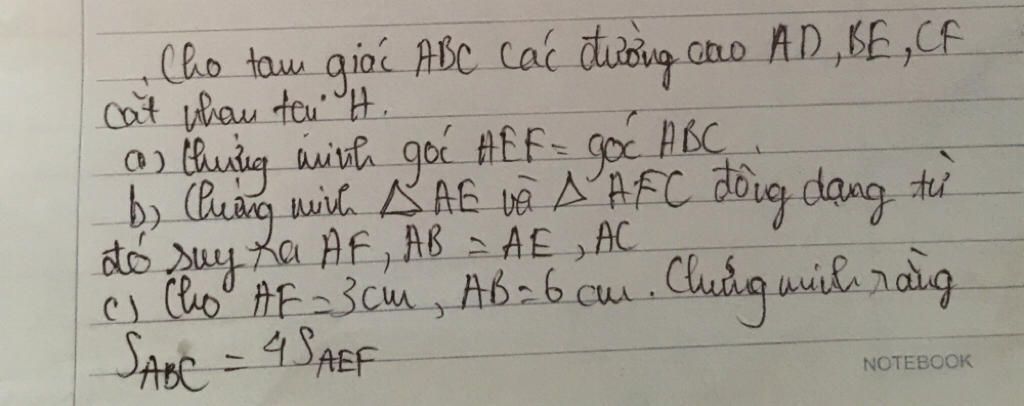 Cho tam giác ABC các đường cao AD, BE, CF
cắt nhau tại H.
a) Chứng minh góc AEF = góc ABC.
b) Chứng minh △ AE và △ AFC đồng dạng từ
đó suy ra AF, AB = AE, AC
c) Cho AF = 3cm, AB = 6 cm. Chứng minh rằng
S_ABC = 4S_AEF
NOTEBOOK